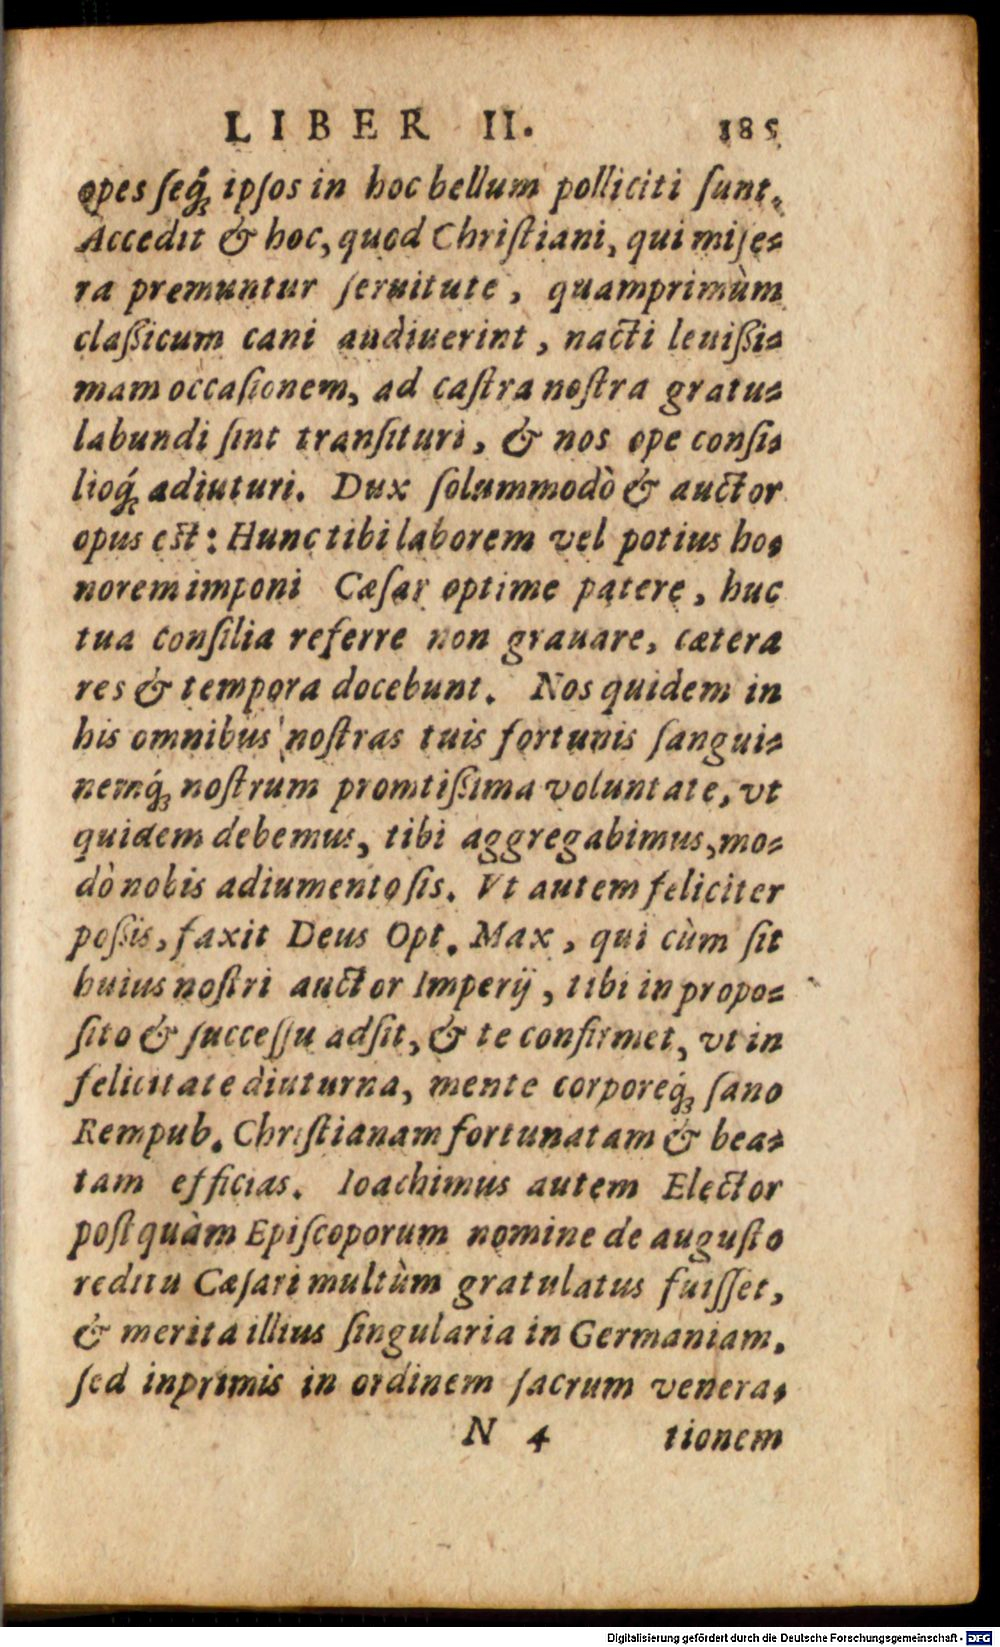 LIBER II. 185
opes seq́; ipsos in hoc bellum polliciti sunt.
Accedit & hoc, quod Christiani, qui mise-
ra premuntur seruitute, quamprimùm
claßicum cani audiuerint, nacti leuißi-
mam occasionem, ad castra nostra gratu-
labundi sint transituri, & nos ope consi-
lioq́; adiuturi. Dux solummodò & auctor
opus est: Hunc tibi laborem vel potius ho-
norem imponi Cæsar optime patere, huc
tua consilia referre non grauare, cætera
res & tempora docebunt. Nos quidem in
his omnibus nostras tuis fortunis sangui-
nemq́; nostrum promtißima voluntate, vt
quidem debemus, tibi aggregabimus, mo-
dò nobis adiumento sis. Vt autem feliciter
poßis, faxit Deus Opt. Max, qui cùm sit
huius nostri auctor Imperij, tibi in propo-
sito & successu adsit, & te confirmet, vt in
felicitate diuturna, mente corporeq́; sano
Rempub. Christianam fortunatam & bea-
tam efficias. Ioachimus autem Elector
postquàm Episcoporum nomine de augusto
reditu Cæsari multùm gratulatus fuisset,
& merita illius singularia in Germaniam,
sed inprimis in ordinem sacrum venera-
N 4 tionem
Digitalisierung gefördert durch die Deutsche Forschungsgemeinschaft - DFG